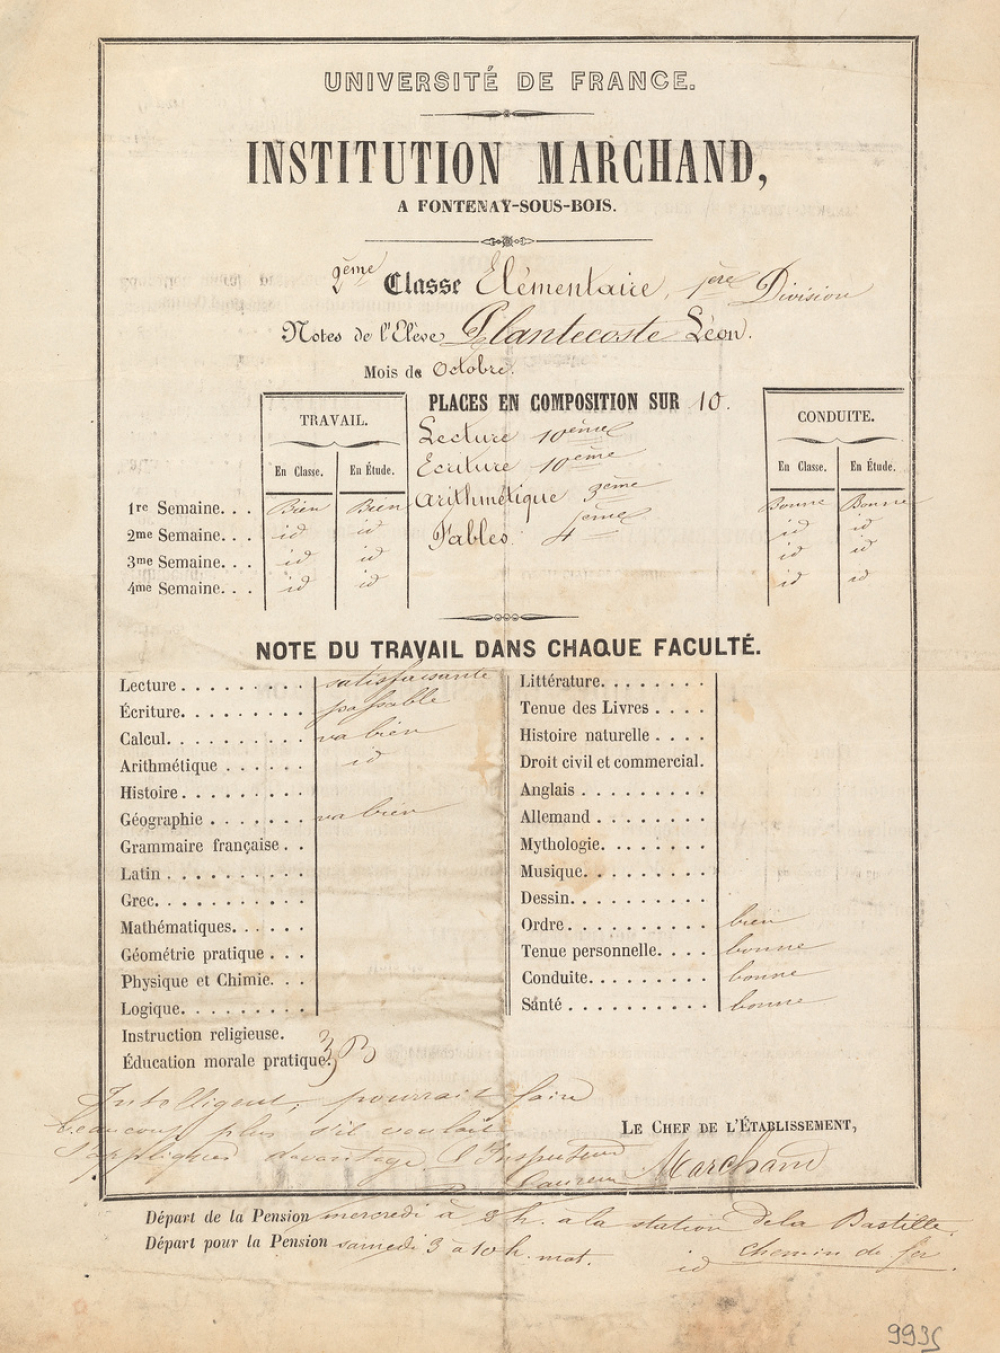 UNIVERSITÉ DE FRANCE.
INSTITUTION MARCHAND,
A FONTENAY-SOUS-BOIS.
2ème Classe Elémentaire, 1ère Division
Notes de l'Elève Plantecoste Léon.
Mois de Octobre.
PLACES EN COMPOSITION SUR 10.
TRAVAIL.
CONDUITE.
Lecture 10ème
En Classe. En Étude.
Ecriture 10ème
En Classe. En Étude.
Arithmétique 3ème
1re Semaine. . . Bien Bien Bonne Bonne
Fables. 4ème
2me Semaine. . . id id id id
3me Semaine. . . id id id id
4me Semaine. . . id id id id
NOTE DU TRAVAIL DANS CHAQUE FACULTÉ.
Lecture. . . . . . . . . satisfaisante
Écriture. . . . . . . . . passable
Calcul. . . . . . . . . . va bien
Arithmétique . . . . . . id
Histoire. . . . . . . . .
Géographie . . . . . . . va bien
Grammaire française . .
Latin . . . . . . . . . .
Grec. . . . . . . . . . .
Mathématiques. . . . . .
Géométrie pratique . . .
Physique et Chimie. . .
Logique. . . . . . . . .
Instruction religieuse.
Éducation morale pratique. 3 B
Littérature. . . . . . . .
Tenue des Livres . . . .
Histoire naturelle . . . .
Droit civil et commercial.
Anglais . . . . . . . . .
Allemand . . . . . . . .
Mythologie. . . . . . . .
Musique. . . . . . . . .
Dessin. . . . . . . . . .
Ordre. . . . . . . . . . bien
Tenue personnelle. . . . bonne
Conduite. . . . . . . . . bonne
Santé . . . . . . . . . . bonne
Intelligent, pourrait faire
beaucoup plus s'il voulait
s'appliquer davantage. l'Inspecteur
LE CHEF DE L'ÉTABLISSEMENT,
Marchand
Départ de la Pension mercredi à 8 h. à la station de la Bastille,
chemin de fer.
Départ pour la Pension samedi 3 à 10 h. mat. id
9935